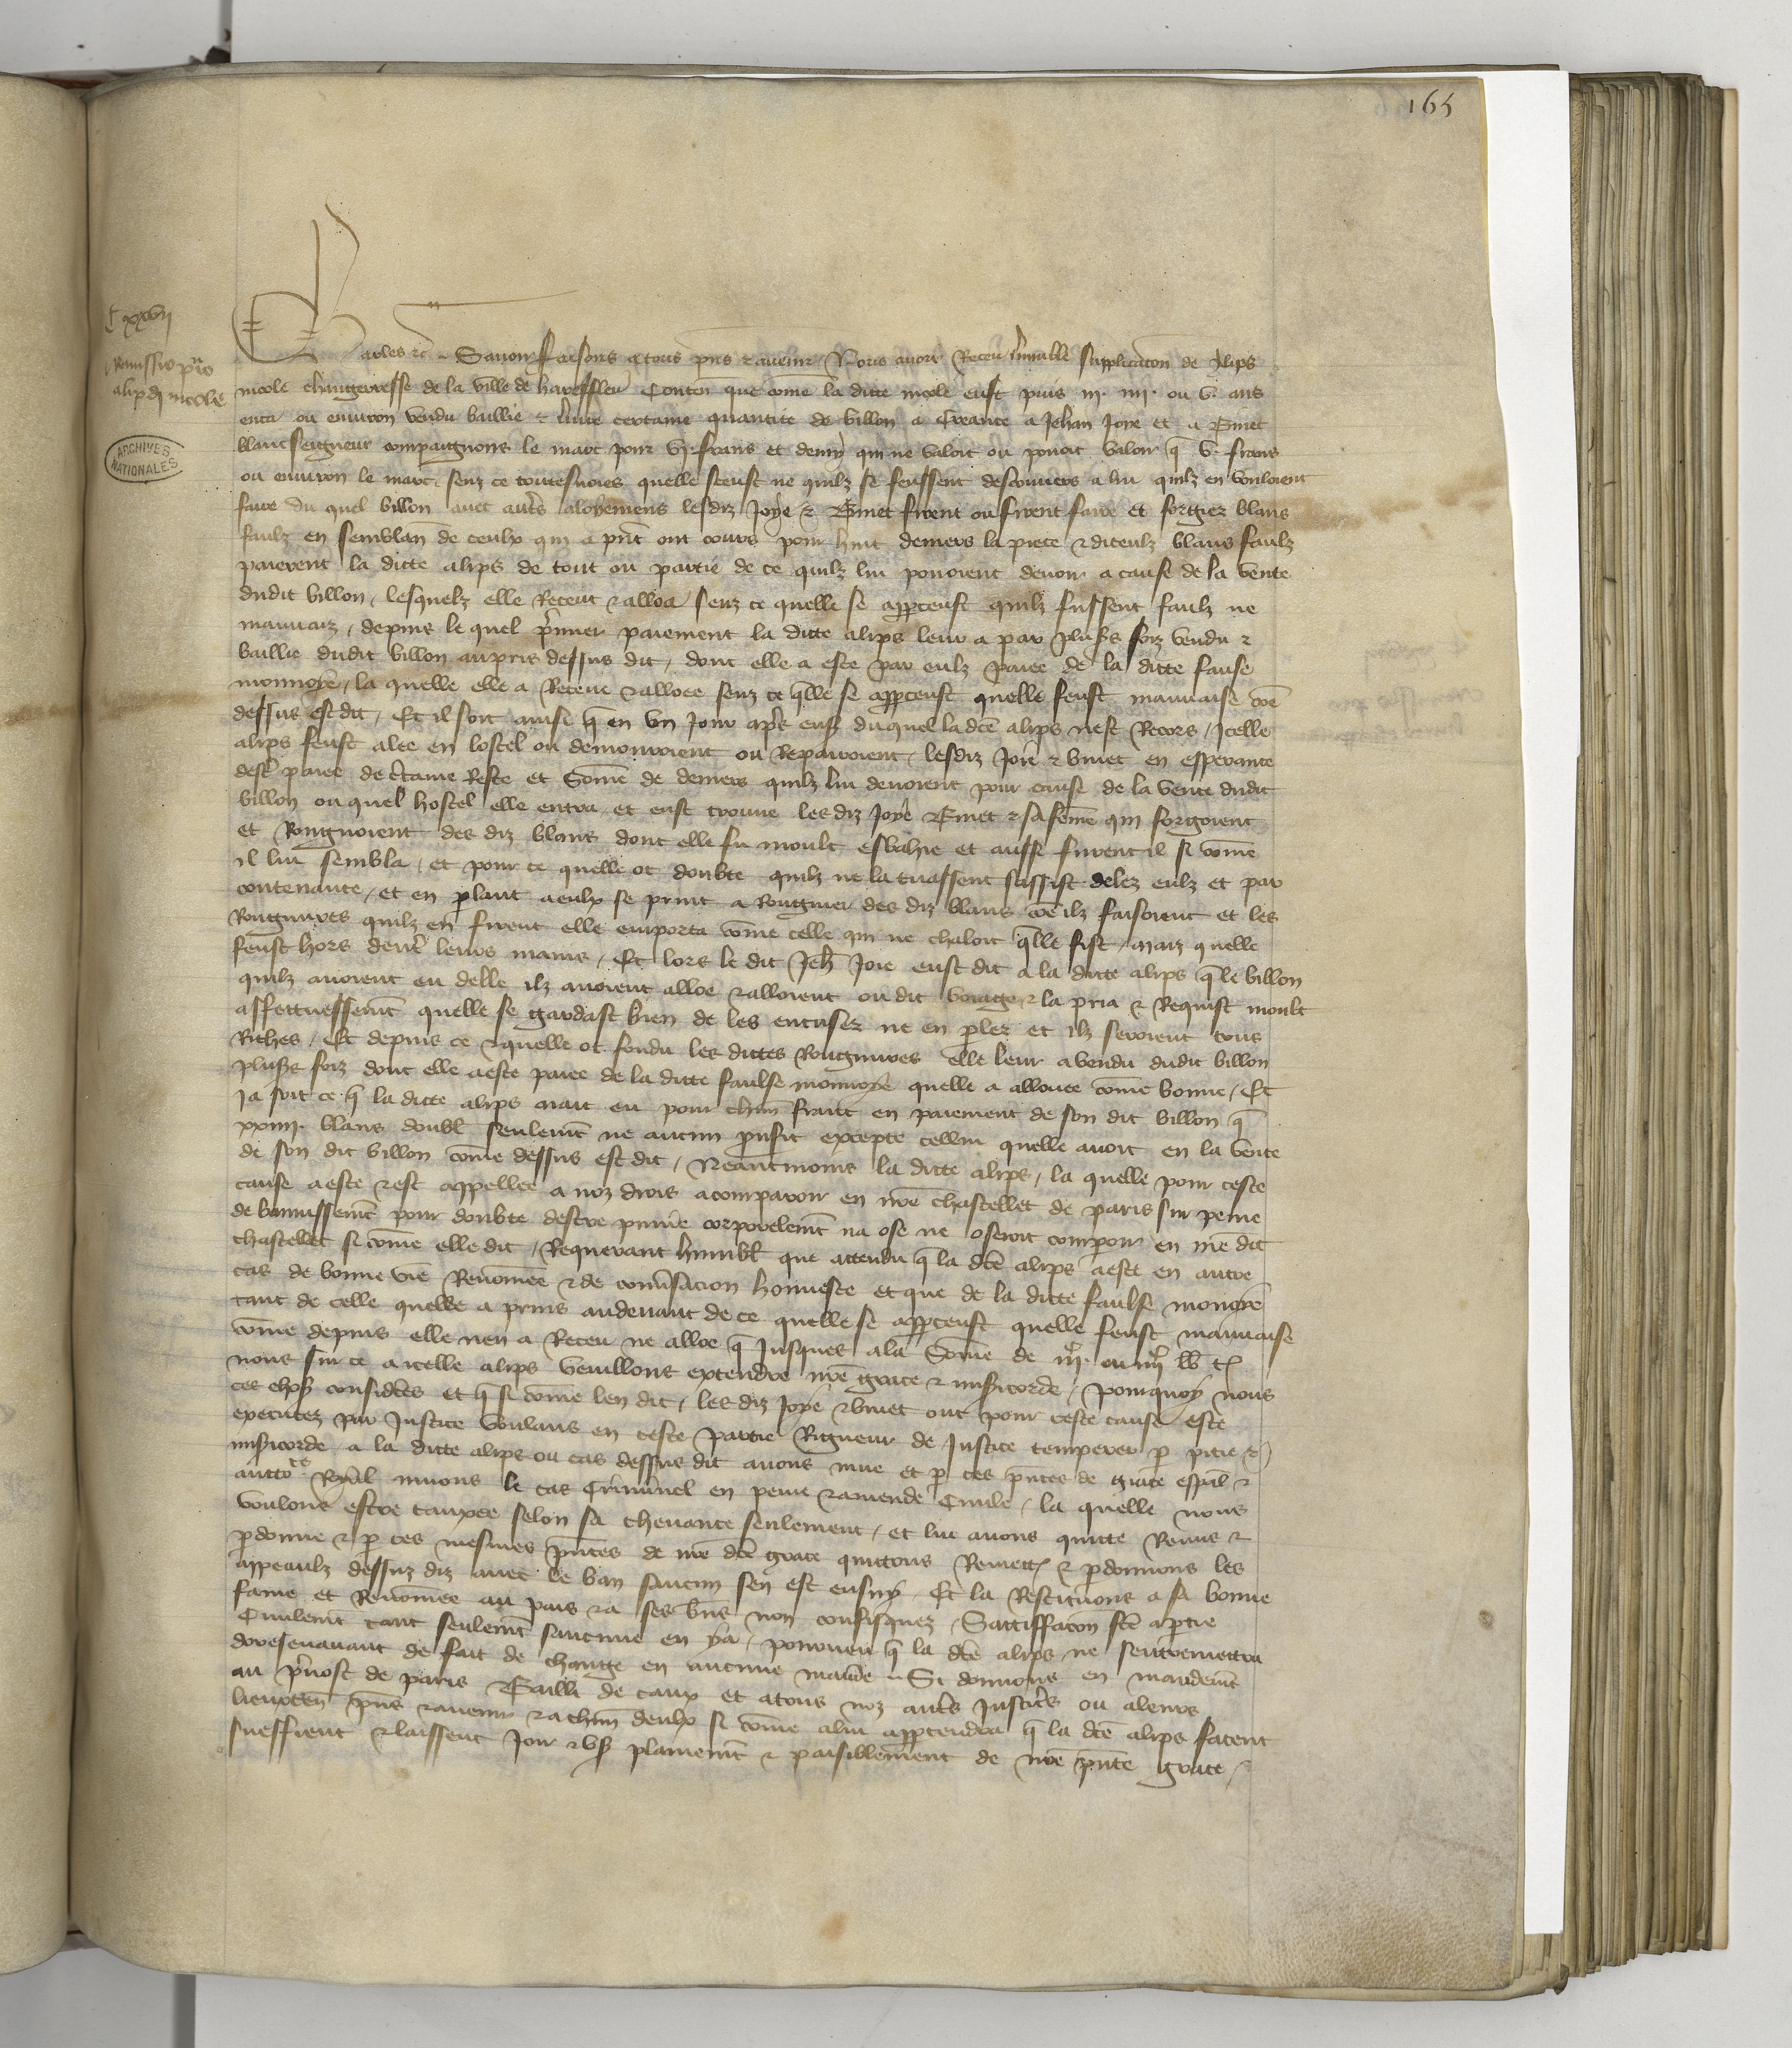 165
C xxvii
Remissio pro
alipdi nicole
ARCHIVES
NATIONALES
Charles etc. Savoir faisons a tous pns et avenir Nous avoir Receu humble supplicacon de Alips
nicole changerresse de la ville de hareffleu Conten que come la ditte nicole eust puis iii. iiii. ou v. ans
enca ou environ vendu baillie et livre certaine quantite de billon a Creance a Jehan Joye et a Binet
blancseigneur compaignons le marc pour vi. frans et demy qui ne valoit ou povoit valoir q v. frans
ou environ le marc, senz ce toutesvoies quelle sceust ne quilz se feussent descouvers a lui quilz en vouloient
faire du quel billon avec autres aloyemens lesdiz Joye et Binet firent ou firent faire et forgier blans
faulz en semblan de ceulx qui a pnt ont cours pour huit deniers la piece et diceulz blans faulz
paierent la ditte alips de tout ou partie de ce quilz lui povoient devoir a cause de la vente
dudit billon, lesquelz elle Receut et alloa senz ce quelle se apperceust quilz fussent faulz ne
mauvaiz, depuis le quel premier paiement la ditte alips leur a par plus foiz vendu et
baillie dudit billon aupris dessus dit, dont elle a este par eulz paiee de la ditte fause
monnoye, la quelle elle a Receue et alloee senz ce qlle se apperceust quelle feust mauvaise coe
dessus est dit, Et il soit ainsi q en un Jour apres ensuivant duquel la dce alips nest Recors, Icelle
alips feust alee en lostel ou demouroient ou Repairoient, lesdiz Joie et binet en esperance
destre paiee de certaine Reste et Some de deniers quilz lui devoient pour cause de la vente dudit
billon ou quel hostel elle entra et eust trouve les diz Joye Binet et sa feme qui forgoient
et Rongnoient des diz blans dont elle fu moult esbahie et aussi furent il si come
il lui sembla, et pour ce quelle ot doubte quilz ne la tuassent sassist delez eulz et par
contenance, et en plant a eulx se print a Rongnier des diz blans coe ilz faisoient et les
Rongnures quilz en firent elle emporta come celle qui ne chaloit qlle fist, maiz quelle
feust hors dentre leurs mains, Et lors le dit Jeh Joie eust dit a la ditte alips q le billon
quilz avoient eu delle ilz avoient alloe et alloient ou dit voiage, et la pria et Requist moult
affettuessemt quelle se gardast bien de les encuser ne en pler et ilz seroient tous
Riches, Et depuis ce et quelle ot fondu les dittes Rongnures elle leur a vendu dudit billon
plus foiz dont elle a este paiee de la ditte faulse monnoye quelle a allouee come bonne, Et
Ja soit ce q la ditte alips nait eu pour chun franc en paiement de son dit billon q
xxiiii. blans doubl seulemt ne aucun proufit excepte cellui quelle avoit en la vente
de son dit billon come dessus est dit, Neantmoins la ditte alips, la quelle pour ceste
cause a este et est appellee a noz drois a comparoir en nre chastellet de paris sur peine
de bannissemt pour doubte destre punie corporelemt na ose ne oseroit comparoir en nre dit
chastellet si come elle dit, Requerant humbl que attendu q la dce alips a este en autre
cas de bonne vie Renomee et de conversacion honneste et que de la ditte faulse monoye
tant de celle quelle a prins audevant de ce quelle se apperceust quelle feust mauvaise
come depuis elle nen a Receu ne alloe q Jusques a la Some de iii. ou iiii lb t
nous sur ce a icelle alips veuillons extendre nre grace et misicorde, pourquoy nous
ces choses considerees et q si come len dit, les diz Joye et binet ont pour ceste cause este
executez par Justice voulans en ceste partie Rigueur de Justice temperer p pitie et
misicorde, a la ditte alips ou cas dessus dit avons mue et p ces pntes de grace espial et
auttote Royal muons le cas Criminel en peine et amende Civile, la quelle nous
voulons estre tauxee selon sa chevance seulement, et lui avons quitte Remis et
pdonne et p ces mesmes pntes de nre dce grace quittons Remett et pdonnons les
appeaulz dessuz diz avec le ban saucun sen est ensuy, Et la Restituons a sa bonne
fame et Renomee au pais et a ses bns non confisquez, Sattiffacon fce a ptie
Civilemt tant seulemt saucune en y a, pourveu q la dce alips ne sentremettra
doresenavant de fait de change en aucune maniere, Si donnons en mandemt
au prevost de paris Bailli de caux et atous noz autres Justiciers ou aleurs
lieuxten pns et avenir et a chun deulx si come a lui appartendra q la dce alips facent
sueffrent et laissent Jouir et user plainemt et paisiblement de nre pnte grace,